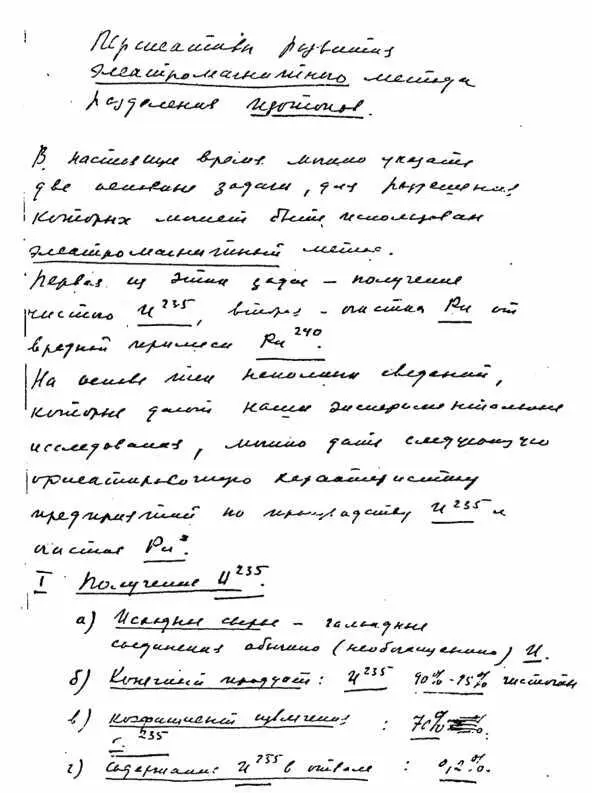 Перспективы развития
электромагнитного метода
разделения изотопов.
В настоящее время можно указать
две основные задачи, для разрешения
которых может быть использован
электромагнитный метод.
Первая из этих задач – получение
чистого U²³⁵, вторая – очистка Pu от
вредной примеси Pu²⁴⁰.
На основе тех неполных сведений,
которые дают наши экспериментальные
исследования, можно дать следующую
ориентировочную характеристику
предприятий по производству U²³⁵ и
очистке Pu.
I Получение U²³⁵.
а) Исходное сырье – галоидные
соединения обычного (необогащенного) U.
б) Конечный продукт: U²³⁵ 90%-95% чистоты
в) Коэффициент извлечения : 70%
²³⁵
г) Содержание U²³⁵ в отвале : 0,2%.